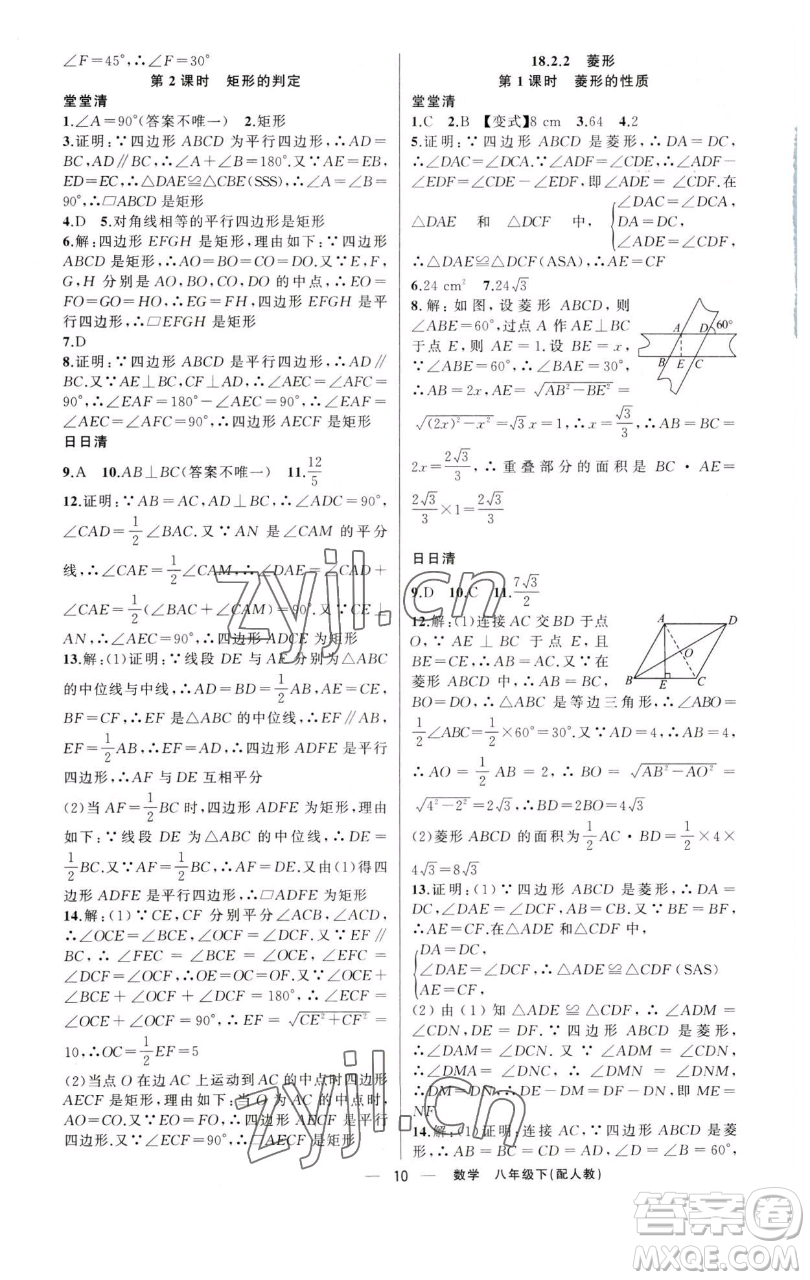 ∠F=45°,∴∠F=30°
第2课时 矩形的判定
堂堂清
1.∠A=90°(答案不唯一) 2.矩形
3.证明:∵四边形 ABCD 为平行四边形,∴AD=
BC,AD∥BC,∴∠A+∠B=180°.又∵AE=EB,
ED=EC,∴△DAE≌△CBE(SSS),∴∠A=∠B=
90°,∴□ABCD 是矩形
4.D 5.对角线相等的平行四边形是矩形
6.解:四边形 EFGH 是矩形,理由如下:∵四边形
ABCD 是矩形,∴AO=BO=CO=DO.又∵E,F,
G,H 分别是 AO,BO,CO,DO 的中点,∴EO=
FO=GO=HO,∴EG=FH.∴四边形 EFGH 是平
行四边形,∴□EFGH 是矩形
7.D
8.证明:∵四边形 ABCD 是平行四边形,∴AD∥
BC.又∵AE⊥BC,CF⊥AD,∴∠AEC=∠AFC=
90°,∴∠EAF=180°-∠AEC=90°,∴∠EAF=
∠AEC=∠AFC=90°,∴四边形 AECF 是矩形
日日清
9.A 10.AB⊥BC(答案不唯一) 11.12/5
12.证明:∵AB=AC,AD⊥BC,∴∠ADC=90°,
∠CAD=1/2∠BAC.又∵AN 是∠CAM 的平分
线,∴∠CAE=1/2∠CAM,∴∠DAE=∠CAD+
∠CAE=1/2(∠BAC+∠CAM)=90°.又∵CE⊥
AN,∴∠AEC=90°,∴四边形 ADCE 为矩形
13.解:(1)证明:∵线段 DE 与 AE 分别为△ABC 的
中位线与中线,∴AD=BD=1/2AB,AE=CE,
BF=CF,∴EF 是△ABC 的中位线,∴EF∥AB,
EF=1/2AB,∴EF=AD,∴四边形 ADFE 是平行
四边形,∴AF 与 DE 互相平分
(2)当 AF=1/2BC 时,四边形 ADFE 为矩形,理由
如下:∵线段 DE 为△ABC 的中位线,∴DE=
1/2BC.又∵AF=1/2BC,∴AF=DE.又由(1)得四
边形 ADFE 是平行四边形,∴□ADFE 为矩形
14.解:(1)∵CE,CF 分别平分∠ACB,∠ACD,
∴∠OCE=∠BCE,∠OCF=∠DCF.又∵EF∥
BC,∴∠FEC=∠BCE=∠OCE,∠EFC=
∠DCF=∠OCF,∴OE=OC=OF.又∵∠OCE+
∠BCE+∠OCF+∠DCF=180°,∴∠ECF=
∠OCE+∠OCF=90°,∴EF=√(CE²+CF²)=
10,∴OC=1/2EF=5
(2)当点 O 在边 AC 上运动到 AC 的中点时四边形
AECF 是矩形,理由如下:∵当 O 为 AC 的中点时,
AO=CO.又∵EO=FO,∴四边形 AECF 是平行
四边形.又∵∠ECF=90°,∴□AECF 是矩形
18.2.2 菱形
第1课时 菱形的性质
堂堂清
1.C 2.B 【变式】8 cm 3.64 4.2
5.证明:∵四边形 ABCD 是菱形,∴DA=DC,
∴∠DAC=∠DCA.∵∠ADF=∠CDE,∴∠ADF-
∠EDF=∠CDE-∠EDF,即∠ADE=∠CDF.在
△DAE 和 △DCF 中,{∠DAC=∠DCA,
DA=DC,
∠ADE=∠CDF,
∴△DAE≌△DCF(ASA),∴AE=CF
6.24 cm² 7.24√3
8.解:如图,设菱形 ABCD,则
∠ABE=60°,过点 A 作 AE⊥BC
于点 E,则 AE=1.设 BE=x,
∵∠ABC=60°,∴∠BAE=30°,
∴AB=2x,AE=√(AB²-BE²)=
√((2x)²-x²)=√3x=1,∴x=√3/3,∴AB=BC=
2x=2√3/3,∴重叠部分的面积是 BC·AE=
2√3/3×1=2√3/3
A D 60°
B E C
日日清
9.D 10.C 11.7√3/2
12.解:(1)连接 AC 交 BD 于点
O,∵AE⊥BC 于点 E,且
BE=CE,∴AB=AC.又∵在
菱形 ABCD 中,AB=BC,
BO=DO,∴△ABC 是等边三角形,∴∠ABO=
1/2∠ABC=1/2×60°=30°.又∵AD=4,∴AB=4,
∴AO=1/2AB=2,∴BO=√(AB²-AO²)=
√(4²-2²)=2√3,∴BD=2BO=4√3
(2)菱形 ABCD 的面积为1/2AC·BD=1/2×4×
4√3=8√3
A D
O
B E C
13.证明:(1)∵四边形 ABCD 是菱形,∴DA=
DC,∠DAE=∠DCF,AB=CB.又∵BE=BF,∴AE=CF.在△ADE 和△CDF 中,
{DA=DC,
∠DAE=∠DCF,∴△ADE≌△CDF(SAS)
AE=CF,
(2)由(1)知△ADE≌△CDF,∴∠ADM=
∠CDN,DE=DF.∵四边形 ABCD 是菱形,
∴∠DAM=∠DCN.又∵DA=DC,∠ADM=
∠CDN,∴△DAM≌△DCN,∴DM=DN,
∴DE-DM=DF-DN,即 ME=
NF
14.解:(1)证明:连接 AC,∵四边形 ABCD 是菱
形,∴AB=BC=CD=DA.又∵∠B=60°,
10 数学 八年级下(配人教)
zyjl.cn
zyjl.cn
答案圈
MXQE.COM